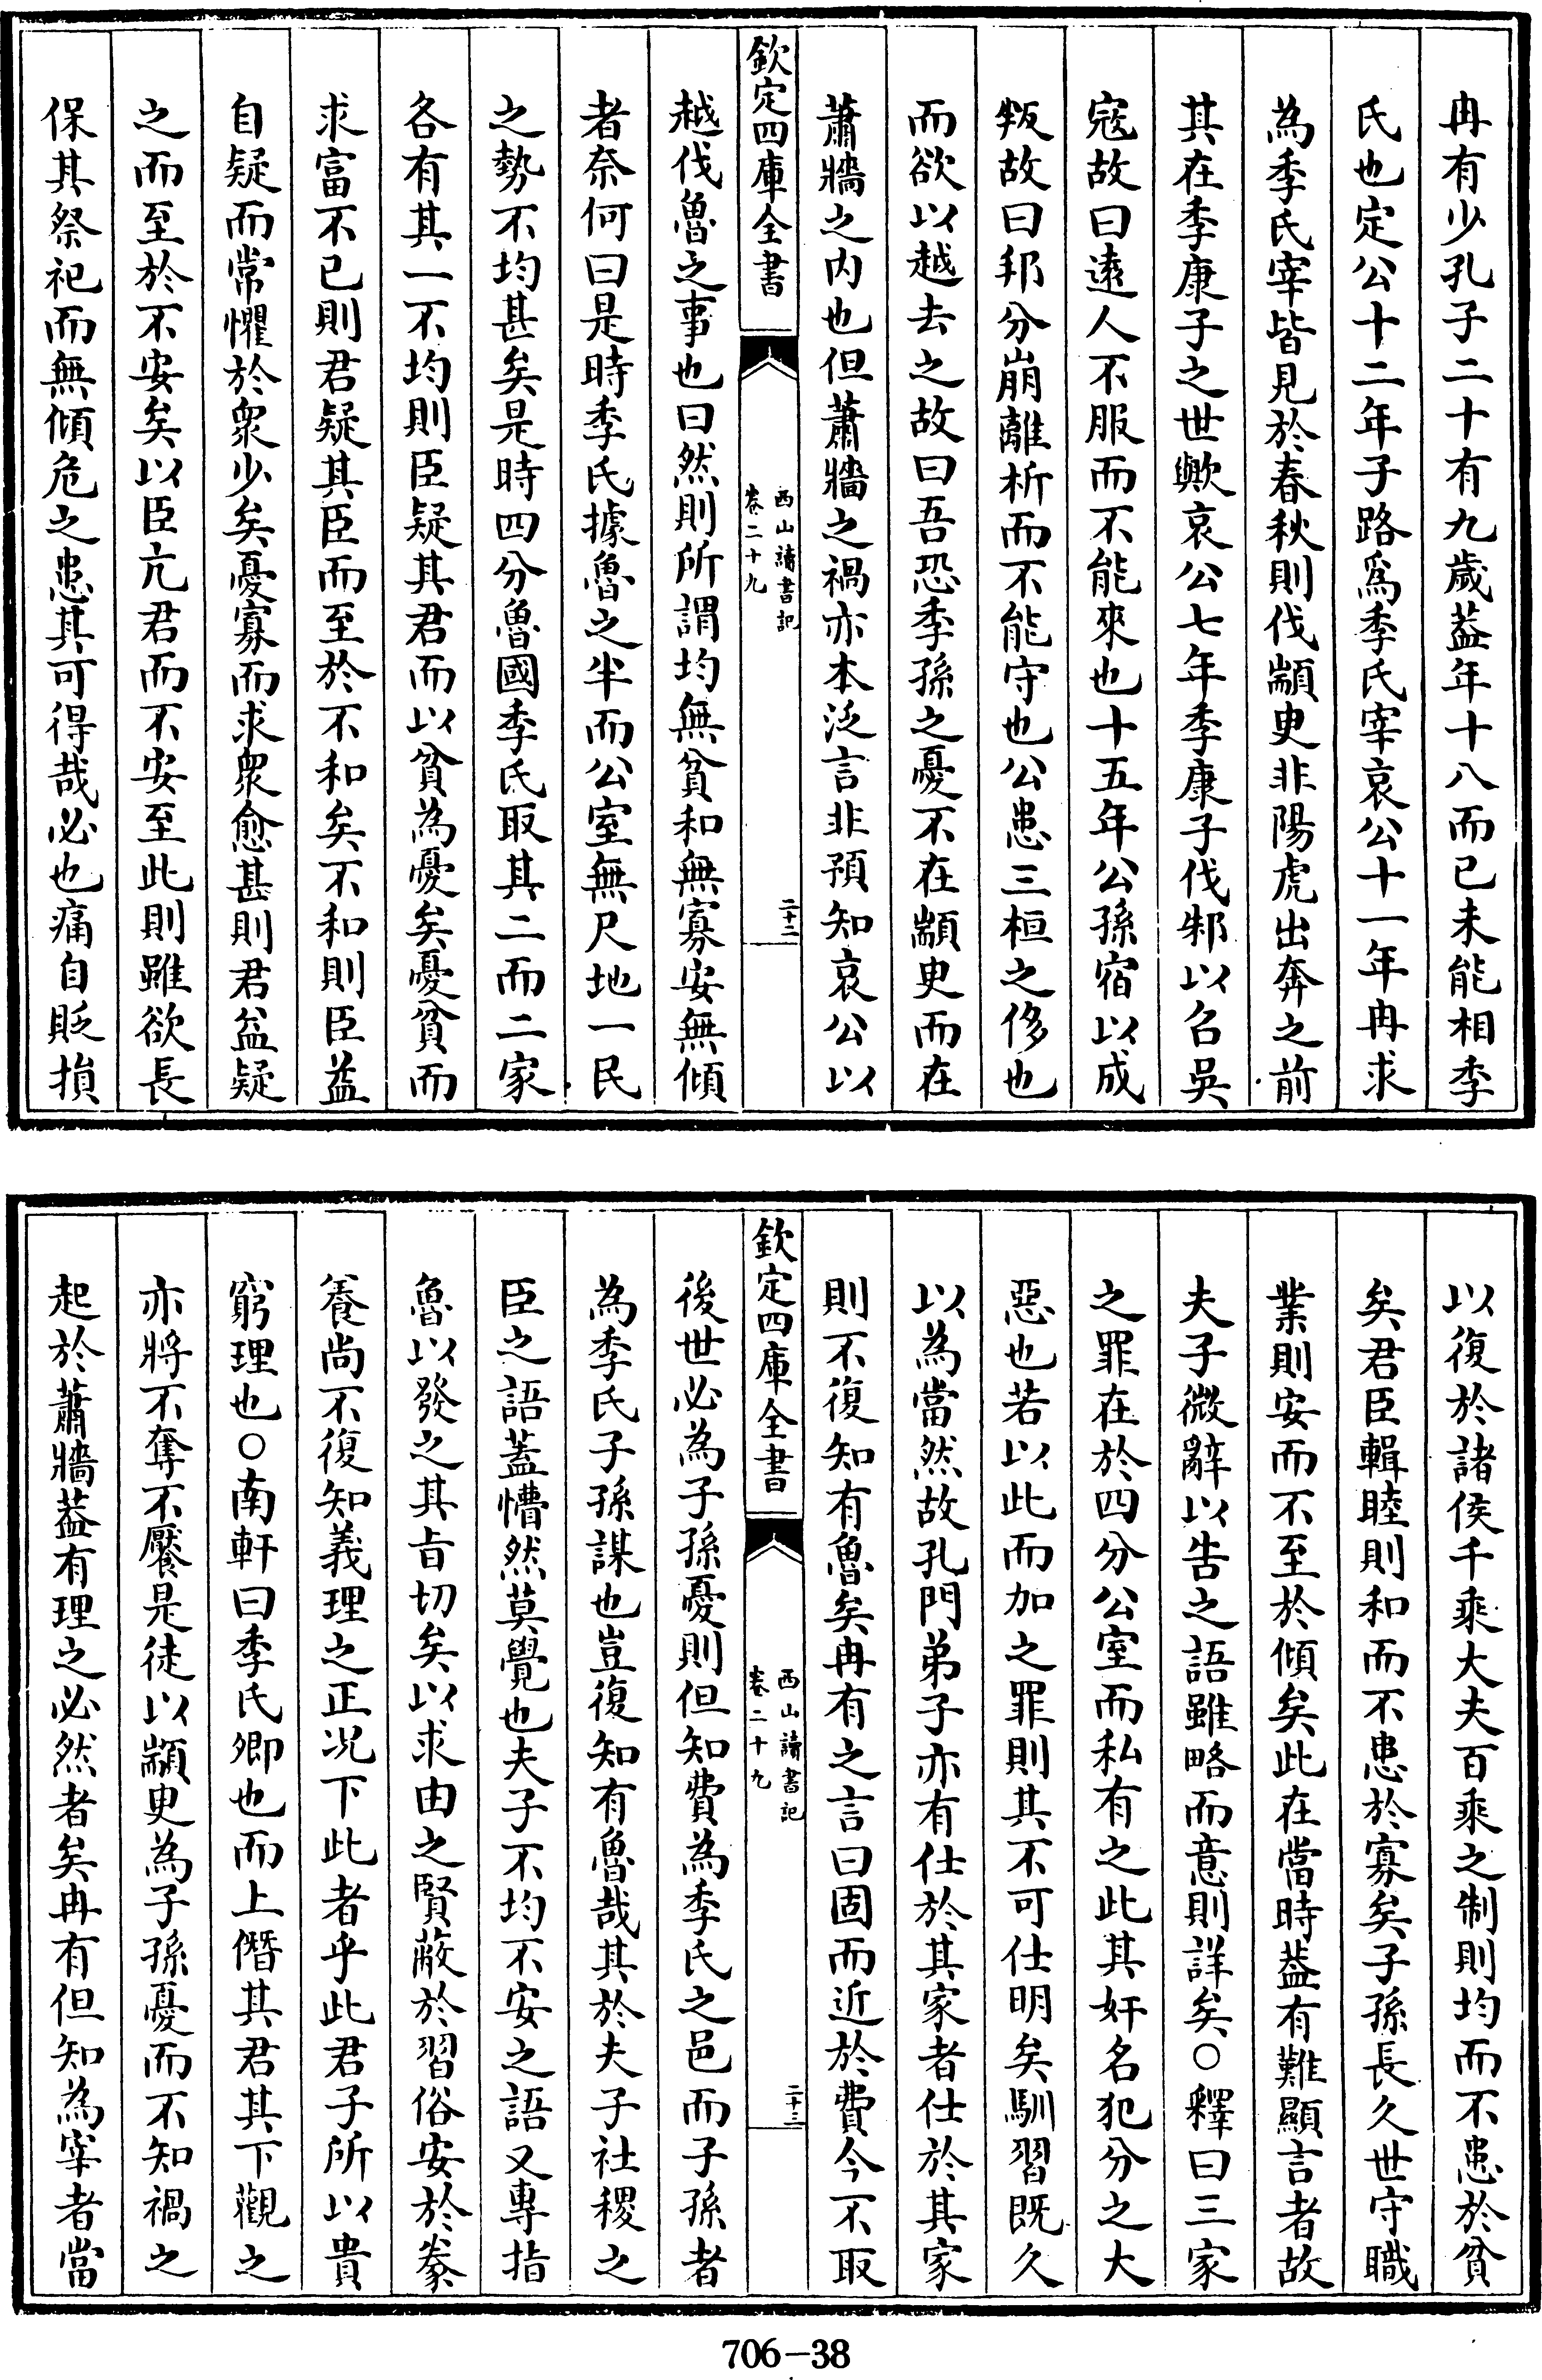 冉有少孔子二十有九歲葢年十八而已未能相季
氏也定公十二年子路爲季氏宰哀公十一年冉求
為季氏宰皆見於春秋則伐顓臾非陽虎出奔之前
其在季康子之世歟哀公七年季康子伐邾以召吳
寇故曰逺人不服而不能來也十五年公孫宿以成
叛故曰邦分崩離析而不能守也公患三桓之侈也
而欲以越去之故曰吾恐季孫之憂不在顓臾而在
蕭牆之内也但蕭牆之禍亦本泛言非預知哀公以
欽定四庫全書
西山讀書記
卷二十九
二十二
越伐魯之事也曰然則所謂均無貧和無寡安無傾
者奈何曰是時季氏據魯之半而公室無尺地一民
之勢不均甚矣是時四分魯國季氏取其二而二家
各有其一不均則臣疑其君而以貧為憂矣憂貧而
求富不已則君疑其臣而至於不和矣不和則臣益
自疑而常懼於衆少矣憂寡而求衆愈甚則君益疑
之而至於不安矣以臣亢君而不安至此則雖欲長
保其祭祀而無傾危之患其可得哉必也痛自貶損
以復於諸侯千乘大夫百乘之制則均而不患於貧
矣君臣輯睦則和而不患於寡矣子孫長久世守職
業則安而不至於傾矣此在當時葢有難顯言者故
夫子微辭以告之語雖略而意則詳矣○釋曰三家
之罪在於四分公室而私有之此其奸名犯分之大
惡也若以此而加之罪則其不可仕明矣馴習既久
以為當然故孔門弟子亦有仕於其家者仕於其家
則不復知有魯矣冉有之言曰固而近於費今不取
欽定四庫全書
西山讀書記
卷二十九
二十三
後世必為子孫憂則但知費為季氏之邑而子孫者
為季氏子孫謀也豈復知有魯哉其於夫子社稷之
臣之語蓋懵然莫覺也夫子不均不安之語又專指
魯以發之其旨切矣以求由之賢蔽於習俗安於豢
養尚不復知義理之正况下此者乎此君子所以貴
窮理也○南軒曰季氏卿也而上僭其君其下觀之
亦將不奪不饜是徒以顓臾為子孫憂而不知禍之
起於蕭牆葢有理之必然者矣冉有但知為宰者當
706-38